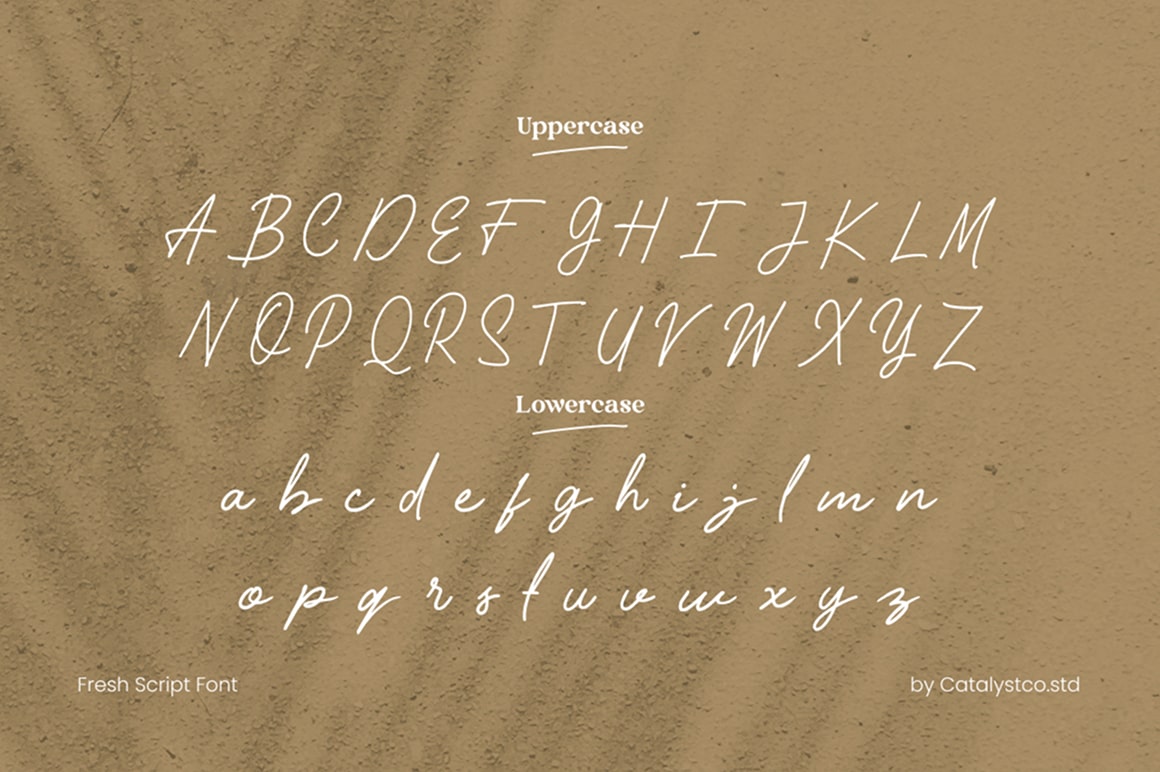 Uppercase
A B C D E F G H I J K L M
N O P Q R S T U V W X Y Z
Lowercase
a b c d e f g h i j l m n
o p q r s t u v w x y z
Fresh Script Font
by Catalystco.std